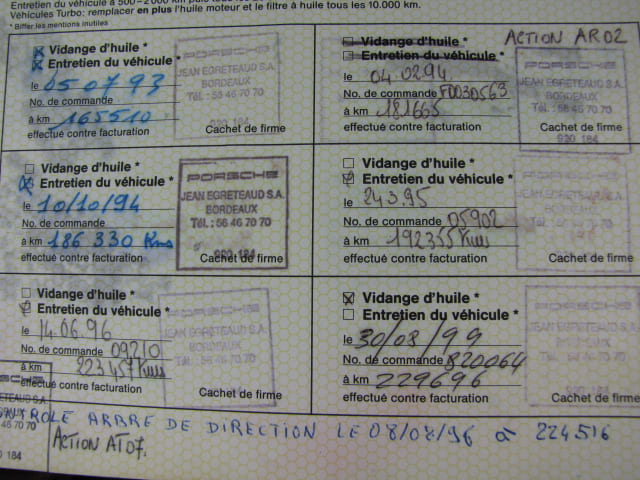 Véhicules Turbo: remplacer en plus l'huile moteur et le filtre à huile tous les 10.000 km.
* Biffer les mentions inutiles
Vidange d'huile *
Entretien du véhicule *
le 05 07 93
No. de commande
à km 165510
effectué contre facturation
PORSCHE
JEAN EGRETEAUD S.A.
BORDEAUX
Tél. : 56 46 70 70
920 184
Cachet de firme
ACTION AR02
Vidange d'huile *
Entretien du véhicule *
le 04.0294
No. de commande FD030563
à km 181665
effectué contre facturation
PORSCHE
JEAN EGRETEAUD S.A.
BORDEAUX
Tél. : 56 46 70 70
Cachet de firme
920 184
Vidange d'huile *
Entretien du véhicule *
le 10/10/94
No. de commande
à km 186 330 Kms
effectué contre facturation
PORSCHE
JEAN EGRETEAUD S.A.
BORDEAUX
Tél. : 56 46 70 70
920 184
Cachet de firme
Vidange d'huile *
Entretien du véhicule *
le 24.3.95
No. de commande 05902
à km 192355 Kms
effectué contre facturation
Cachet de firme
Vidange d'huile *
Entretien du véhicule *
le 14.06.96
No. de commande 09210
à km 223457 Kms
effectué contre facturation
PORSCHE
JEAN EGRETEAUD S.A.
BORDEAUX
Tél. : 56 46 70 70
Cachet de firme
Vidange d'huile *
Entretien du véhicule *
le 30/08/99
No. de commande 820064
à km 229696
effectué contre facturation
Cachet de firme
ARBRE DE DIRECTION LE 08/08/96 à 224516
ACTION AT07.
46 70 70
184